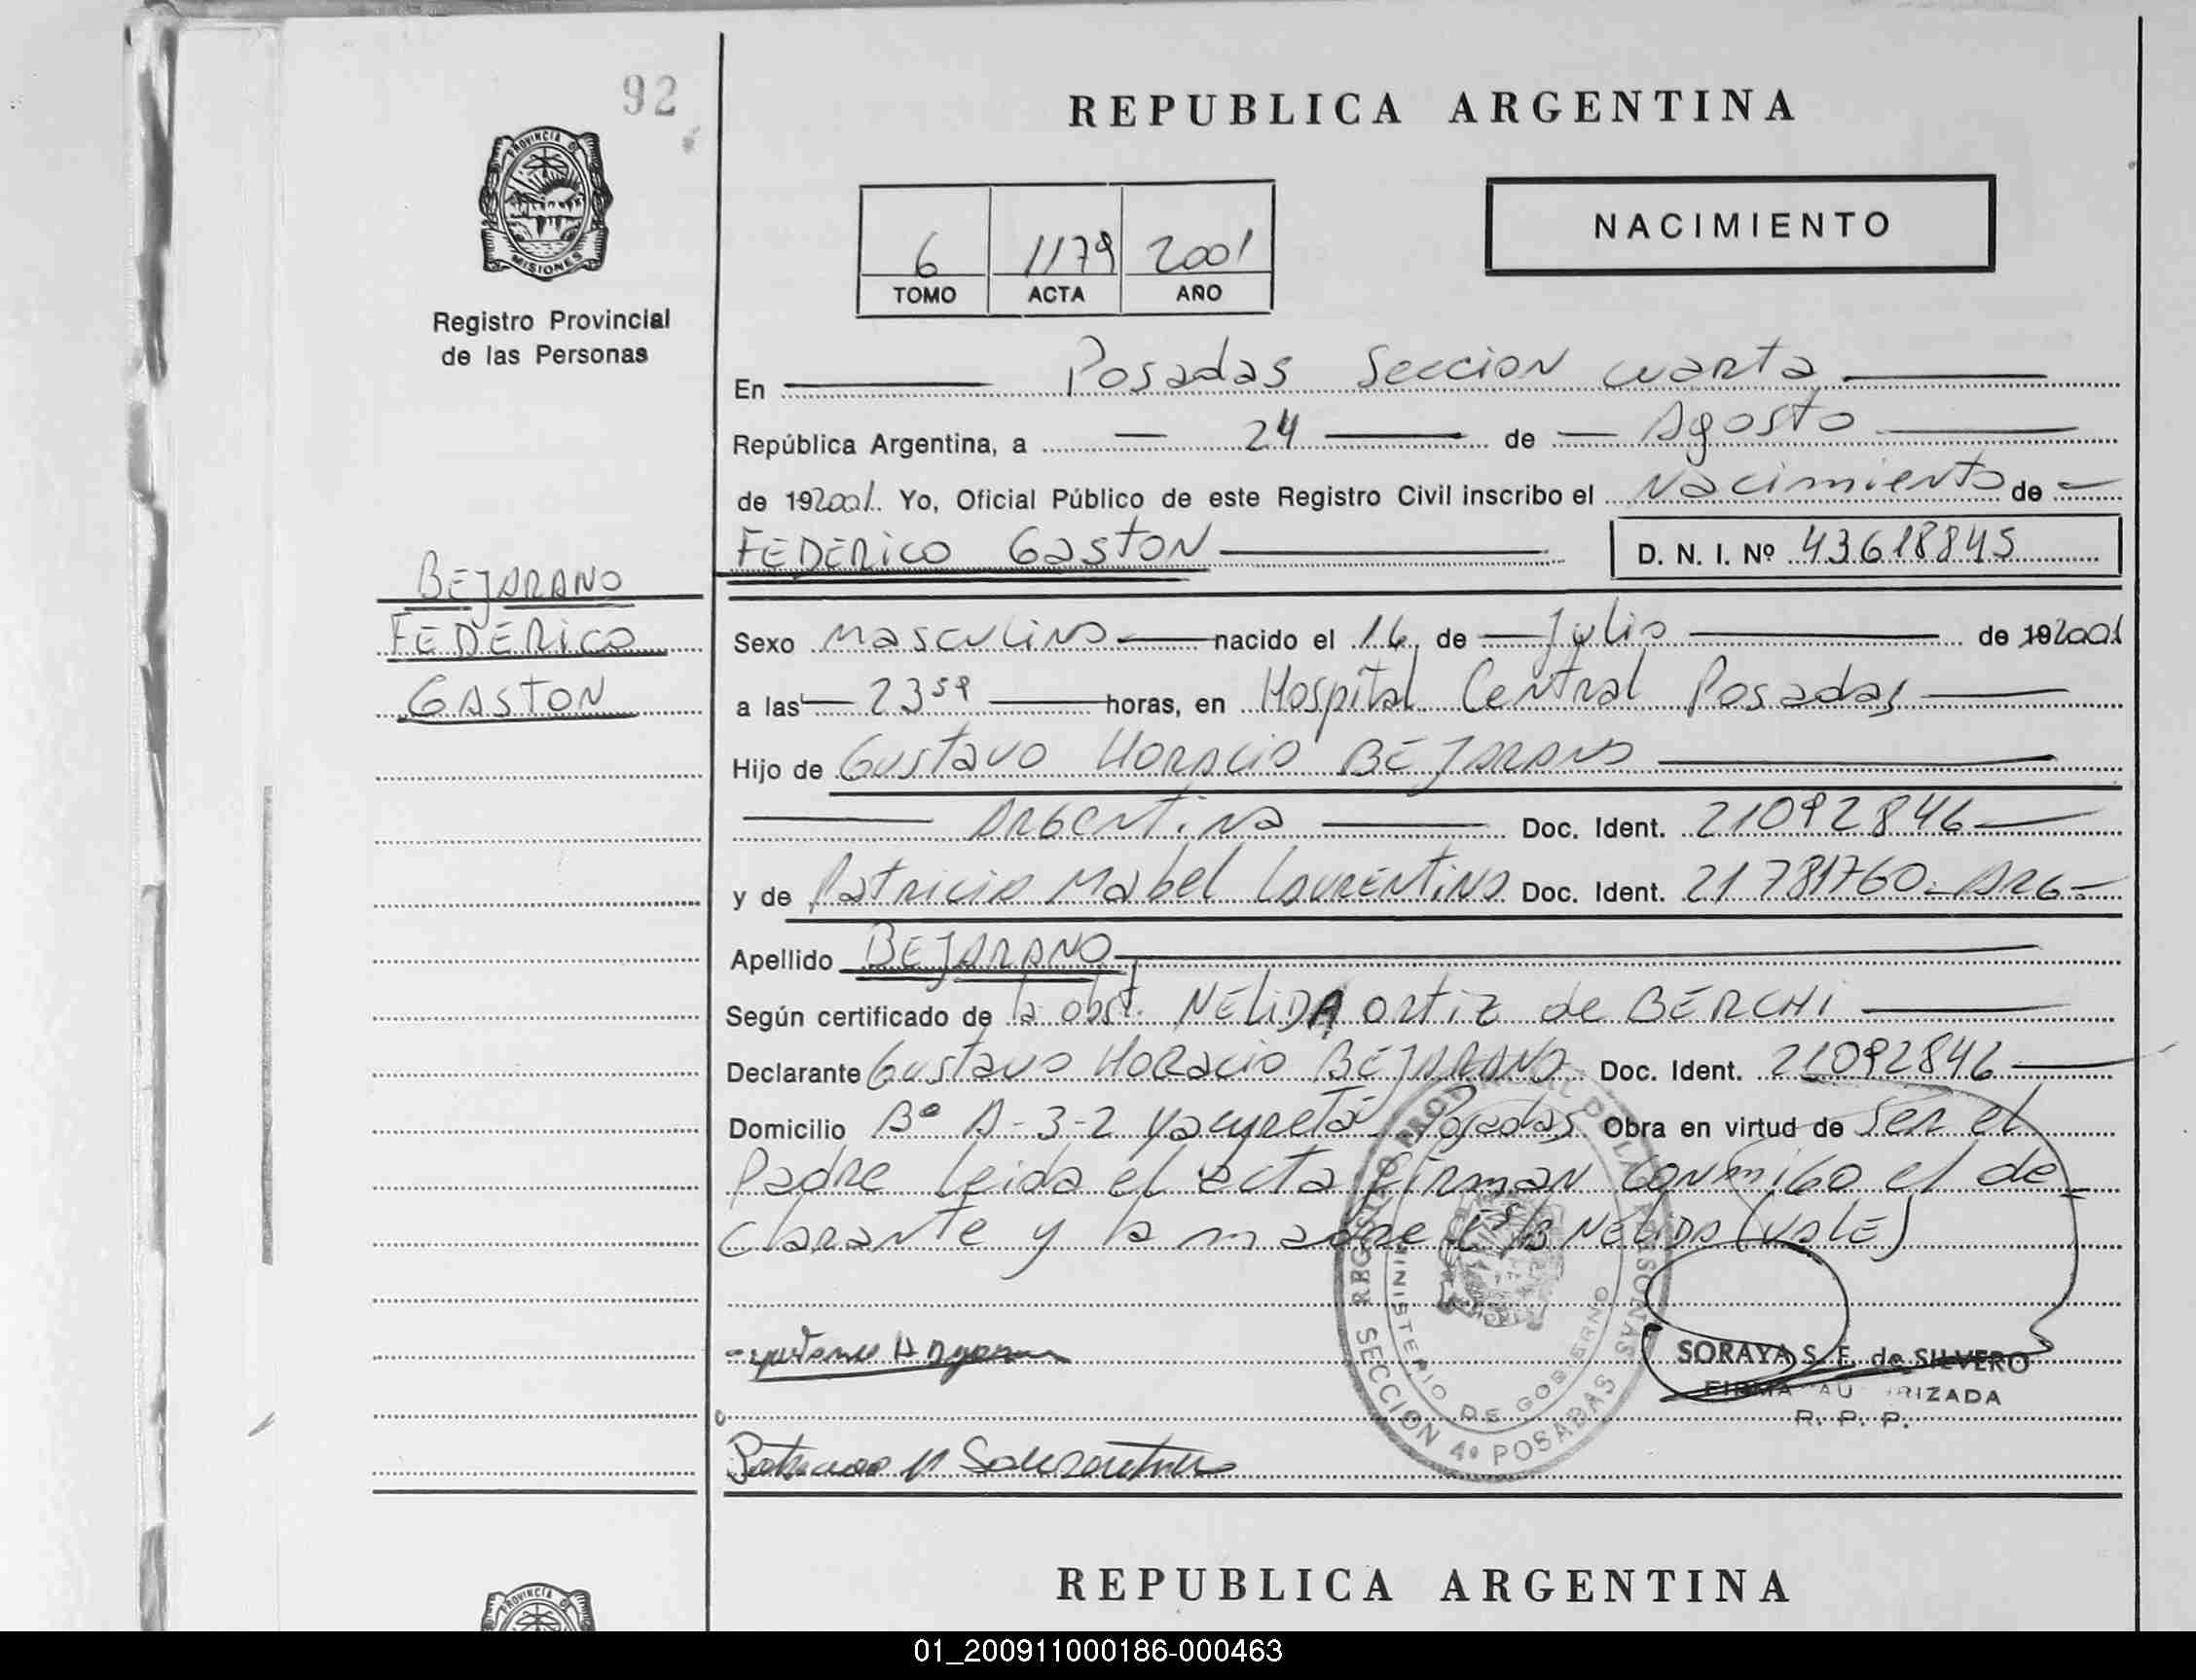 92
PROVINCIA D
MISIONES
Registro Provincial
de las Personas
BEJARANO
FEDERICO
GASTON
REPUBLICA ARGENTINA
6 1179 2001
TOMO ACTA AÑO
NACIMIENTO
En Posadas Seccion cuarta
República Argentina, a 24 de Agosto
de 192001. Yo, Oficial Público de este Registro Civil inscribo el Nacimiento de
FEDERICO GASTON D. N. I. Nº 43618845
Sexo masculino nacido el 16 de Julio de 192001
a las 23 59 horas, en Hospital Central Posadas
Hijo de Gustavo HORACIO BEJARANO
ARGENTINA Doc. Ident. 21092846
y de Patricia Mabel LAURENTINO Doc. Ident. 21781760 - ARG -
Apellido BEJARANO
Según certificado de la obst. NELIDA ORTIZ de BERCHI
Declarante Gustavo HORACIO BEJARANO Doc. Ident. 21092846
Domicilio Bº A-3-2 Yacyretá Posadas Obra en virtud de Ser el
Padre Leida el acta firman conmigo el de-
clarante y la madre NELIDA (VALE)
REGISTRO PROVINCIAL DE LAS PERSONAS
MINISTERIO DE GOBIERNO
SECCION 4ª POSADAS
SORAYA S. F. de SILVERO
FIRMA AUTORIZADA
R. P. P.
PROVINCIA D
REPUBLICA ARGENTINA
01_200911000186-000463